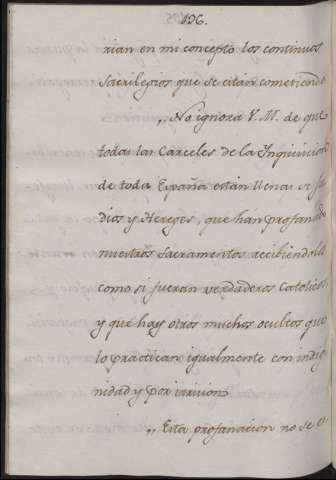 196.
rian en mi concepto los continuos
Sacrilegios que se están cometiendo
,, No ignora V. M. de que
todas las Carceles de la Inquisicion
de toda España están llenas de Ju
dios y Hereges, que hán profanado
nuestros Sacramentos recibiendolos
como si fueran verdaderos Catolicos,
y que hay otros muchos ocultos que
lo practican igualmente con indig
nidad y por irrision
,, Esta profanacion no se